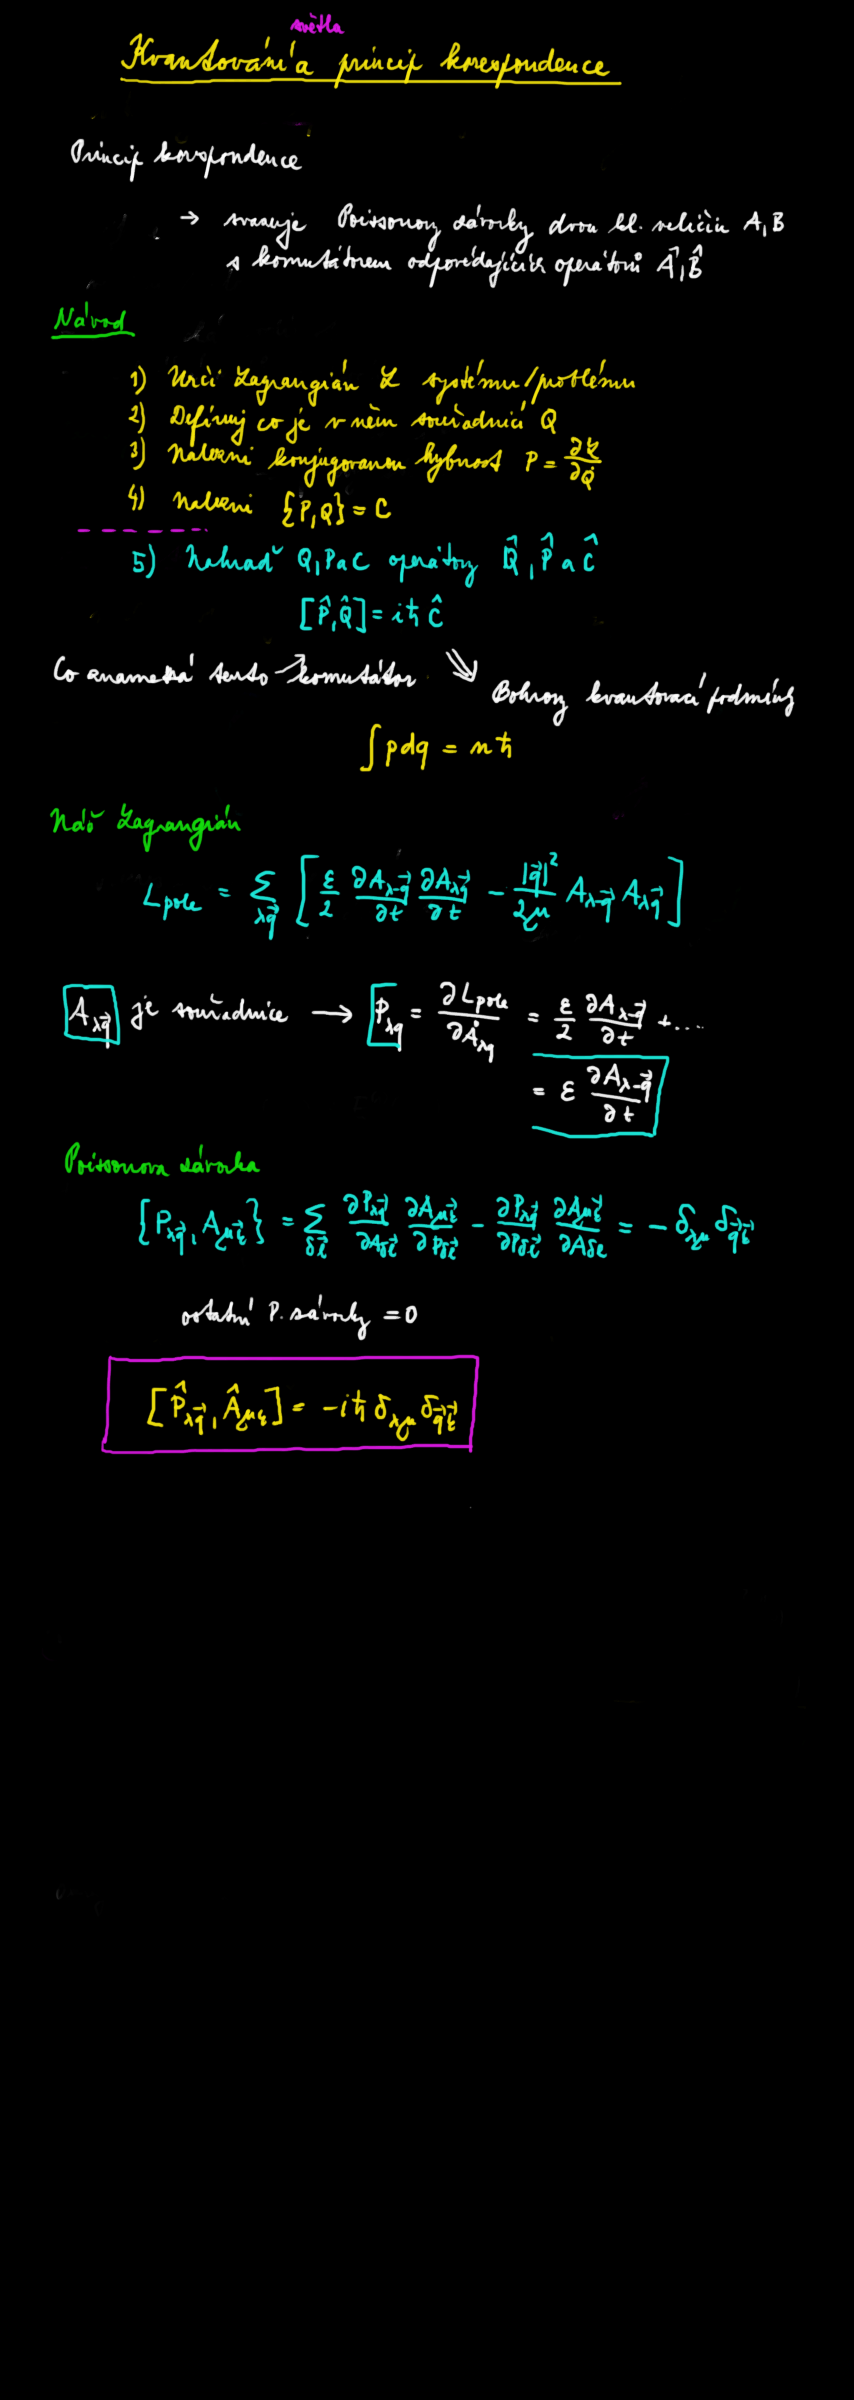 světla
Kvantování a princip korespondence
Princip korespondence
→ svazuje Poissonovy závorky dvou kl. veličin A, B
s komutátorem odpovídajících operátorů Â, B̂
Návod
1) Urči Lagrangián ℒ systému/problému
2) Definuj co je v něm souřadnicí Q
3) Nalezni konjugovanou hybnost P = ∂ℒ/∂Q̇
4) Nalezni {P, Q} = C
5) Nahraď Q, P a C operátory Q̂, P̂ a Ĉ
[P̂, Q̂] = iħ Ĉ
Co znamená tento komutátor
Bohrovy kvantovací podmínky
∫ p dq = nħ
Náš Lagrangián
L_pole = Σ_λq⃗ [ ε/2 ∂A_λ-q⃗/∂t ∂A_λq⃗/∂t − |q⃗|²/2μ A_λ-q⃗ A_λq⃗ ]
A_λq⃗ je souřadnice → P_λq = ∂L_pole/∂Ȧ_λq = ε/2 ∂A_λ-q⃗/∂t + ....
= ε ∂A_λ-q⃗/∂t
Poissonova závorka
{P_λq⃗, A_μk⃗} = Σ_δl⃗ ∂P_λq⃗/∂A_δl⃗ ∂A_μk⃗/∂P_δl⃗ − ∂P_λq⃗/∂P_δl⃗ ∂A_μk⃗/∂A_δl = − δ_λμ δ_q⃗k⃗
ostatní P. závorky = 0
[P̂_λq⃗, Â_μk] = −iħ δ_λμ δ_q⃗k⃗